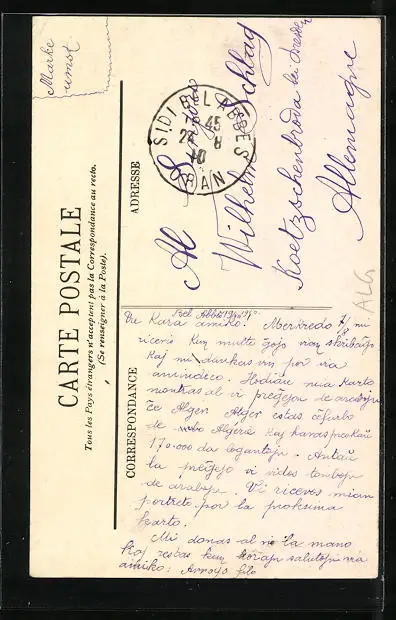 Marke
umst
CARTE POSTALE
Tous les Pays étrangers n'acceptent pas la Correspondance au recto.
(Se renseigner à la Poste).
ADRESSE
SIDI BEL ABBES
ORAN
Al
Wilhelm Schlag
Koetzschenbroda
Allemagne
ALG
CORRESPONDANCE
Kara amiko! Merkredo mi
ricevis kun multe ĝojo vian skribaĵo
kaj mi dankas vin por via
Hodiaŭ mia karto
montras al vi preĝejon de
ĉe Alger. Alger estas ĉefurbo
de Algerie kaj havas preskaŭ
170.000 da loĝantoj. Antaŭ
la preĝejo vi vidos tombojn
de araboj. Vi ricevos mian
portreto por la proksima
karto.
Mi donas al vi la mano
kaj restas kun korajn salutojn via
amiko: